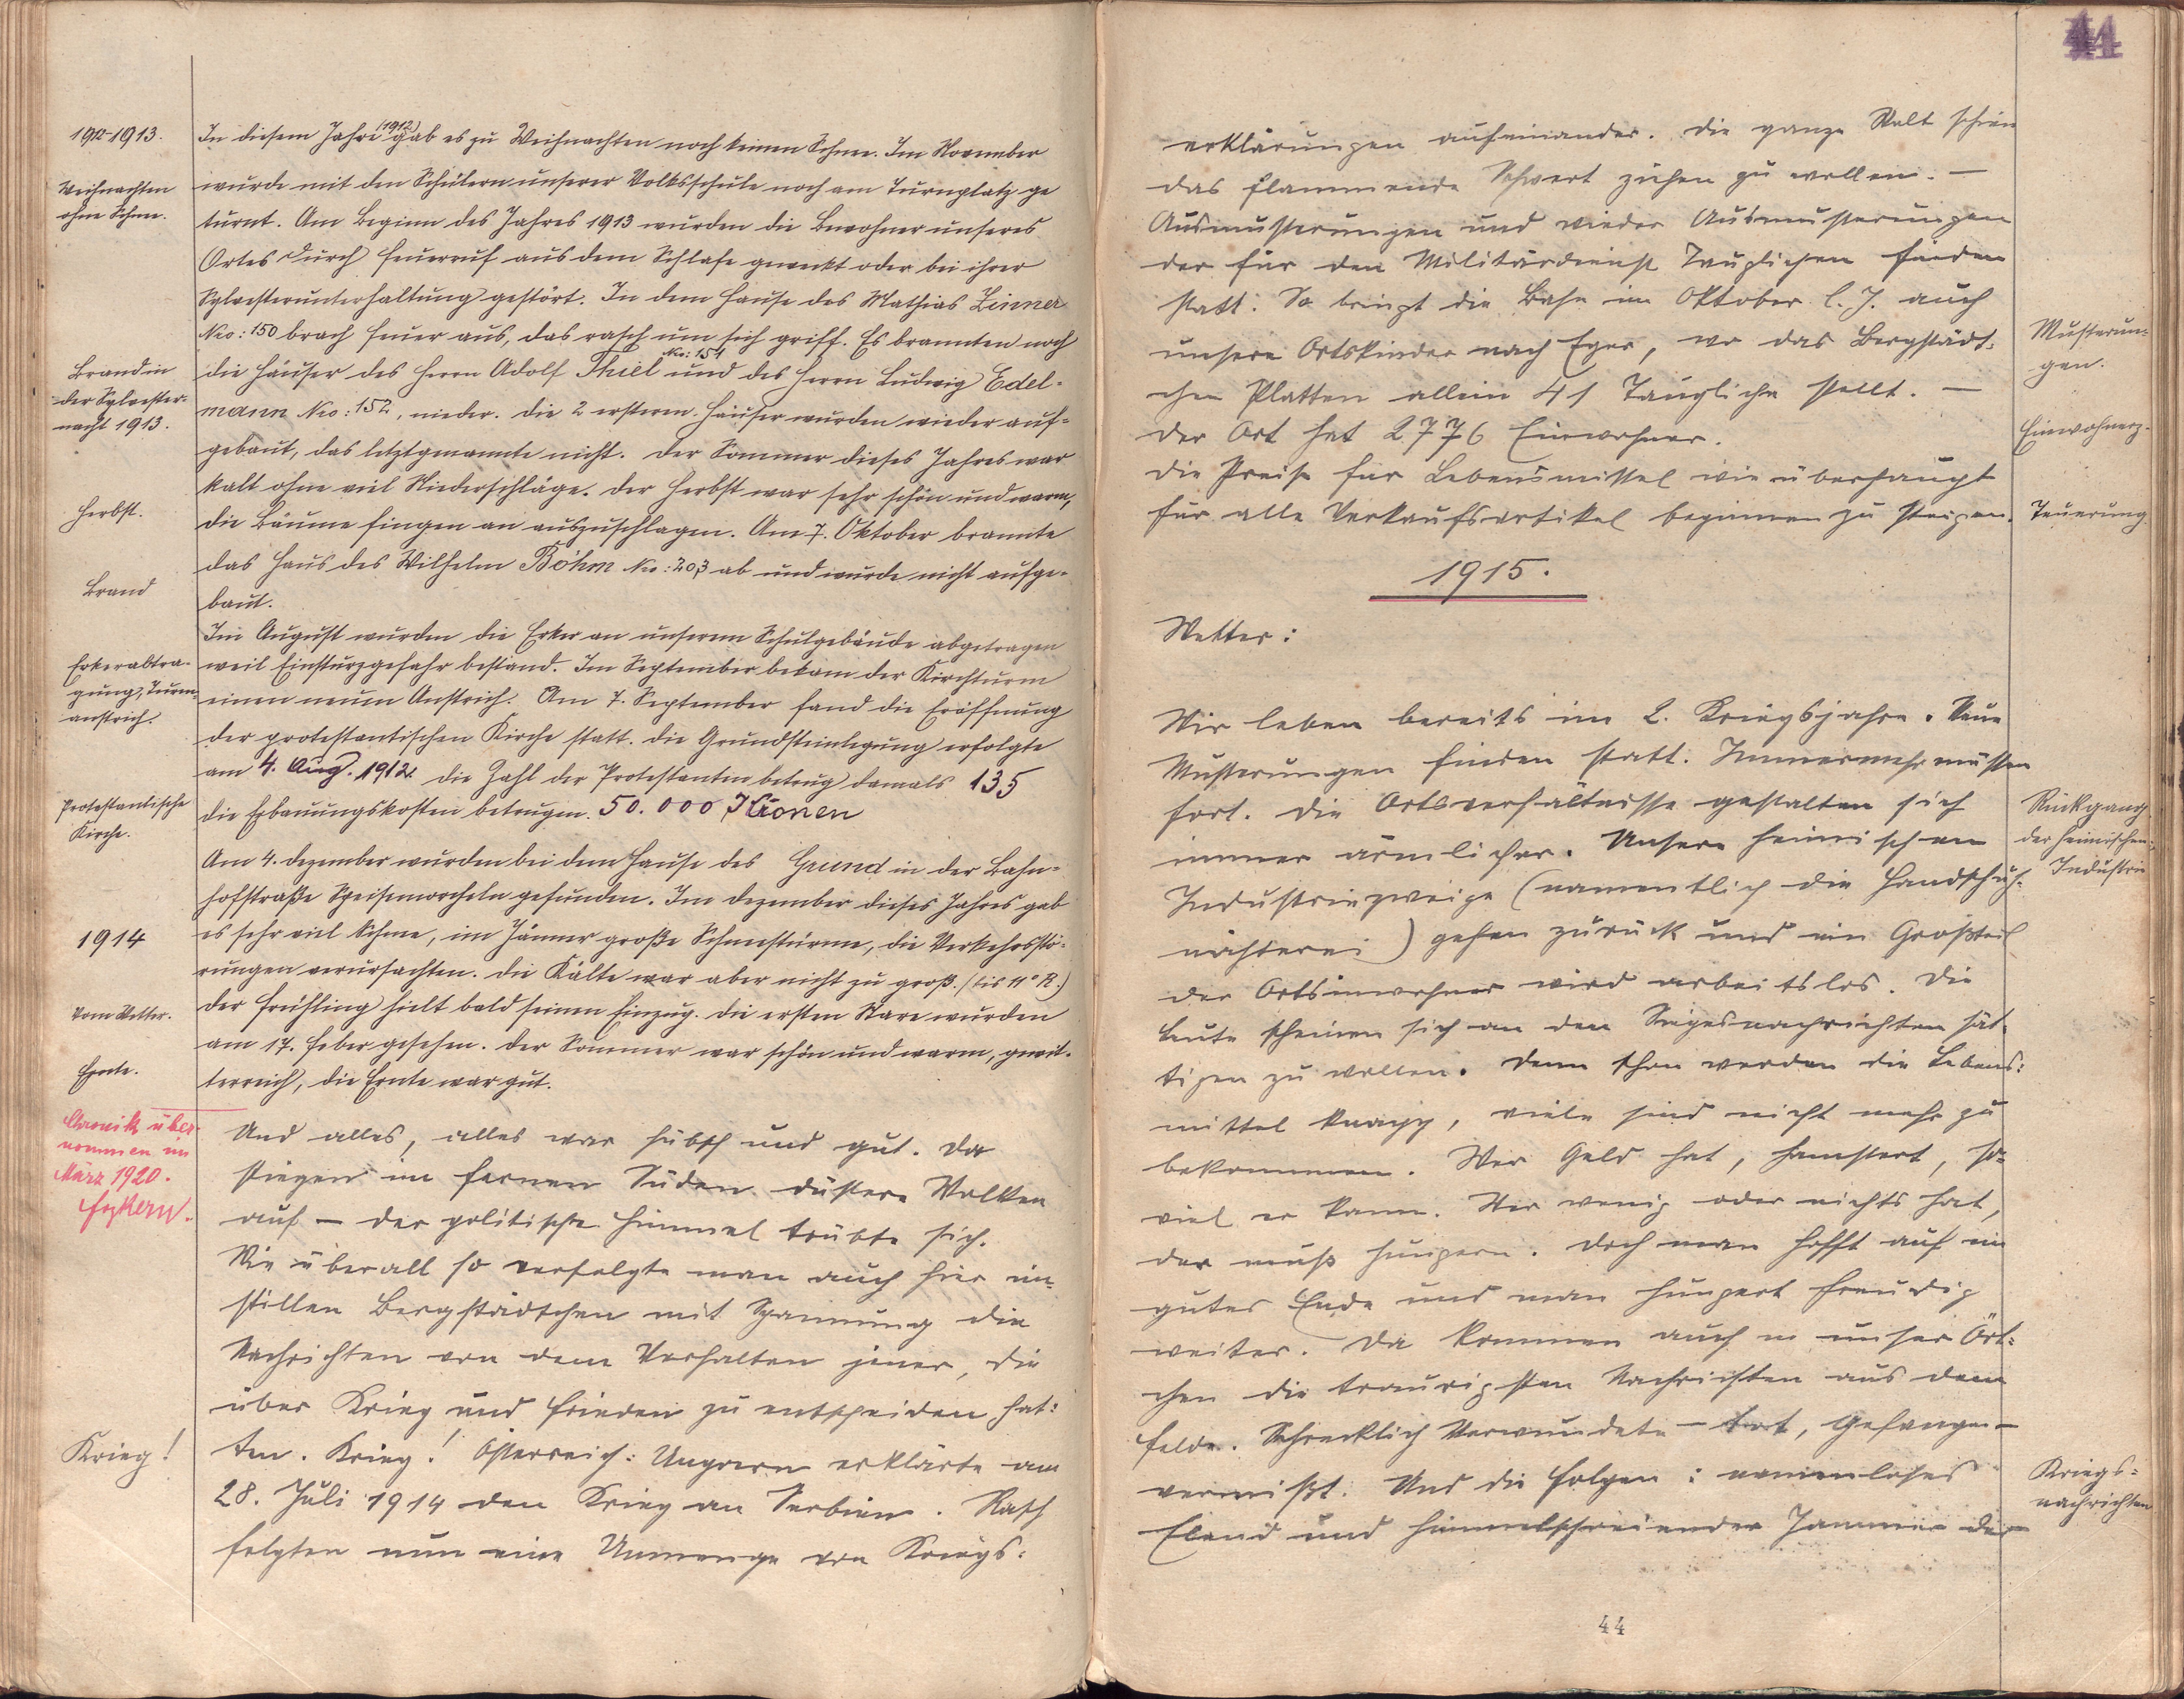 1912-1913.
In diesem Jahre (1912) gab es zu Weihnachten noch keinen Schnee. Im November
Weihnachten
ohne Schnee.
wurde mit den Schülern unserer Volksschule noch am Turnplatz ge
turnt. Am Beginn des Jahres 1913 wurden die Bewohner unseres
Ortes durch Feuerruf aus dem Schlafe geweckt oder bei ihrer
Sylvesterunterhaltung gestört. In dem Hause des Mathias Zinner
Nro: 150 brach Feuer aus, das rasch um sich griff. Es brannten noch
Brand in
der Sylvester-
nacht 1913.
die Häuser des Herrn Adolf Thiel Nro: 154 und des Herrn Ludwig Edel-
mann Nro: 152, nieder. Die 2 ersteren Häuser wurden wieder auf-
gebaut, das letztgenannte nicht. Der Sommer dieses Jahres war
kalt ohne viel Niederschläge. Der Herbst war sehr schön und warm,
Herbst.
die Bäume fingen an auszuschlagen. Am 7. Oktober brannte
das Haus des Wilhelm Böhm Nro: 203 ab und wurde nicht aufge-
Brand
baut.
Im August wurden die Erker an unserem Schulgebäude abgetragen
Erkerabtra-
gung, Turm-
anstrich.
weil Einsturzgefahr bestand. Im September bekam der Kirchturm
einen neuen Anstrich. Am 7. September fand die Eröffnung
der protestantischen Kirche statt. Die Grundsteinlegung erfolgte
am 4. Aug. 1912. Die Zahl der Protestanten betrug damals 135
Protestantische
Kirche.
die Erbauungskosten betrugen. 50.000 Kronen
Am 4. Dezember wurden bei dem Hause des Grund in der Bahn-
hofstraße Speisemorcheln gefunden. Im Dezember dieses Jahres gab
1914
es sehr viel Schnee, im Jänner große Schneestürme, die Verkehrsstö-
rungen verursachten. Die Kälte war aber nicht zu groß. (bis 11° R.)
Vom Wetter.
Der Frühling hielt bald seinen Einzug. Die ersten Stare wurden
am 17. Feber gesehen. Der Sommer war schön und warm, gewit-
Ernte.
terreich, die Ernte war gut.
Chronik über-
nommen im
März 1920.
Und alles, alles war hübsch und gut. Da
stiegen im fernen Süden düstere Wolken
auf – der politische Himmel trübte sich.
Wie überall so verfolgte man auch hier im
stillen Bergstädtchen mit Spannung die
Nachrichten von dem Verhalten jener, die
über Krieg und Frieden zu entscheiden hat:
Krieg!
ten. Krieg! Österreich: Ungarn erklärte am
28. Juli 1914 den Krieg an Serbien. Rasch
folgten nun eine Unmenge von Kriegs:
44
erklärungen aufeinander. Die ganze Welt schien
das flammende Schwert ziehen zu wollen. –
Ausmusterungen und wieder Ausmusterungen
der für den Militärdienst Tauglichen finden
statt. So bringt die Bahn im Oktober l. J. auch
Musterun-
gen.
unsere Ortskinder nach Eger, wo das Bergstädt:
chen Platten allein 41 Taugliche stellt. –
Einwohnerz.
Der Ort hat 2776 Einwohner.
Die Preise für Lebensmittel wie überhaupt
für alle Verkaufsartikel beginnen zu steigen.
Teuerung
1915.
Wetter:
Wir leben bereits im 2. Kriegsjahre. Neue
Musterungen finden statt. Immermehr müssen
fort. Die Ortsverhältnisse gestalten sich
Rückgang
der heimischen
Industrie
immer ärmlicher. Unsere heimischen
Industriezweige (namentlich die Handschuh-
näherei) gehen zurück und ein Großteil
der Ortseinwohner wird arbeitslos. Die
Leute scheinen sich an den Siegesnachrichten sät-
tigen zu wollen. Denn schon werden die Lebens:
mittel knapp, viele sind nicht mehr zu
bekommen. Wer Geld hat, hamstert, so-
viel er kann. Wer wenig oder nichts hat,
der muß hungern. Doch man hofft auf ein
gutes Ende und man hungert freudig
weiter. Da kommen auch in unser Ört:
chen die traurigsten Nachrichten aus dem
Felde. Schrecklich Verwundete – tot, Gefangen –
vermißt. Und die Folgen: namenloses
Kriegs=
nachrichten
Elend und himmelschreiender Jammer der
44